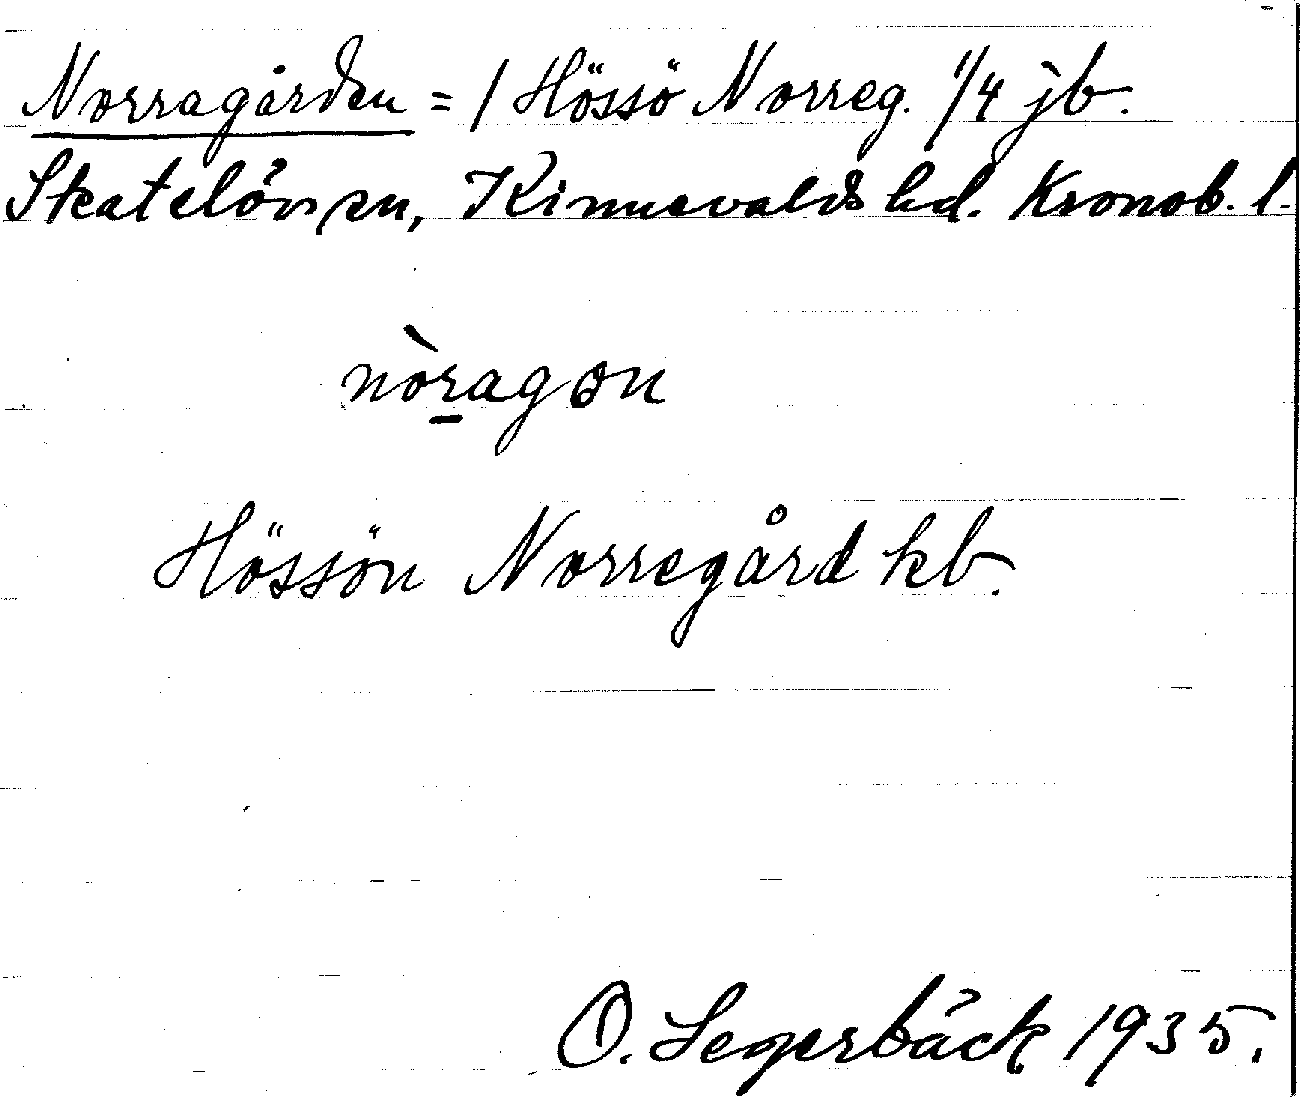 Norragården = / Hössö Norreg. 1/4 jb.
Skatelövs sn, Kinnevalds hd. Kronob. l.
nòragɔn
Hössön Norregård kb.
O. Segerbäck 1935.